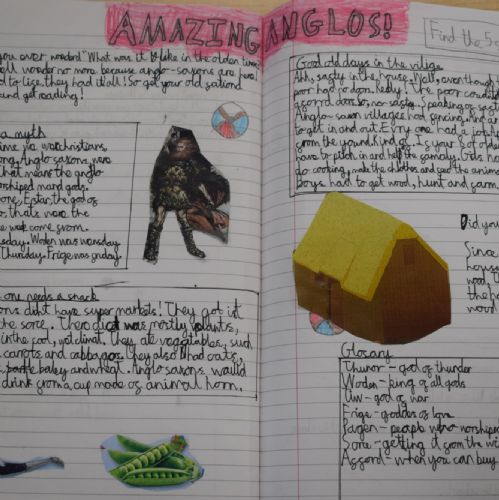 AMAZING ANGLOS!
Find the
you ever wondered "What was it like in the olden times
well wonder no more because anglo-saxons are here
to they had it all! So get your old
and get reading!
a myth
Anglo saxons were
That means the anglo
worshiped many gods.
one, Eostar, the god of
so, that's were the
the week come from.
Woden was wensday
Thunday. Frige was friday.
one needs a snack
didnt have super markets! They got it
the sorce. Their diet was mostly plants,
in the cool, wet climat. they ate vegatables, such
carrots and cabbages. They also had oats,
barley and wheat. Anglo saxons would
drink from a cup made of animal horn.
Good old days in the vilige
Ahh, safty in the house. Well, even though
poor had no door. Really! the poor couldn't
afford doors so no safty. Speaking of
Anglo-saxon villages had fencing. And
to get in and out. Evry one had a job
from the young. Kind of. Is your 5 or older
have to pitch in and help the family. Girls
do cooking, make the clothes and feed the animals
boys have to get wood, hunt and farm.
Did you
Since
house
wood,
the
wood
Glosary
Thunor - god of thunder
Woden - king of all gods
Tiw - god of war
Frige - goddes of love
Pagen - people who worshiped
Sorce - getting it from the
Afford - when you can buy